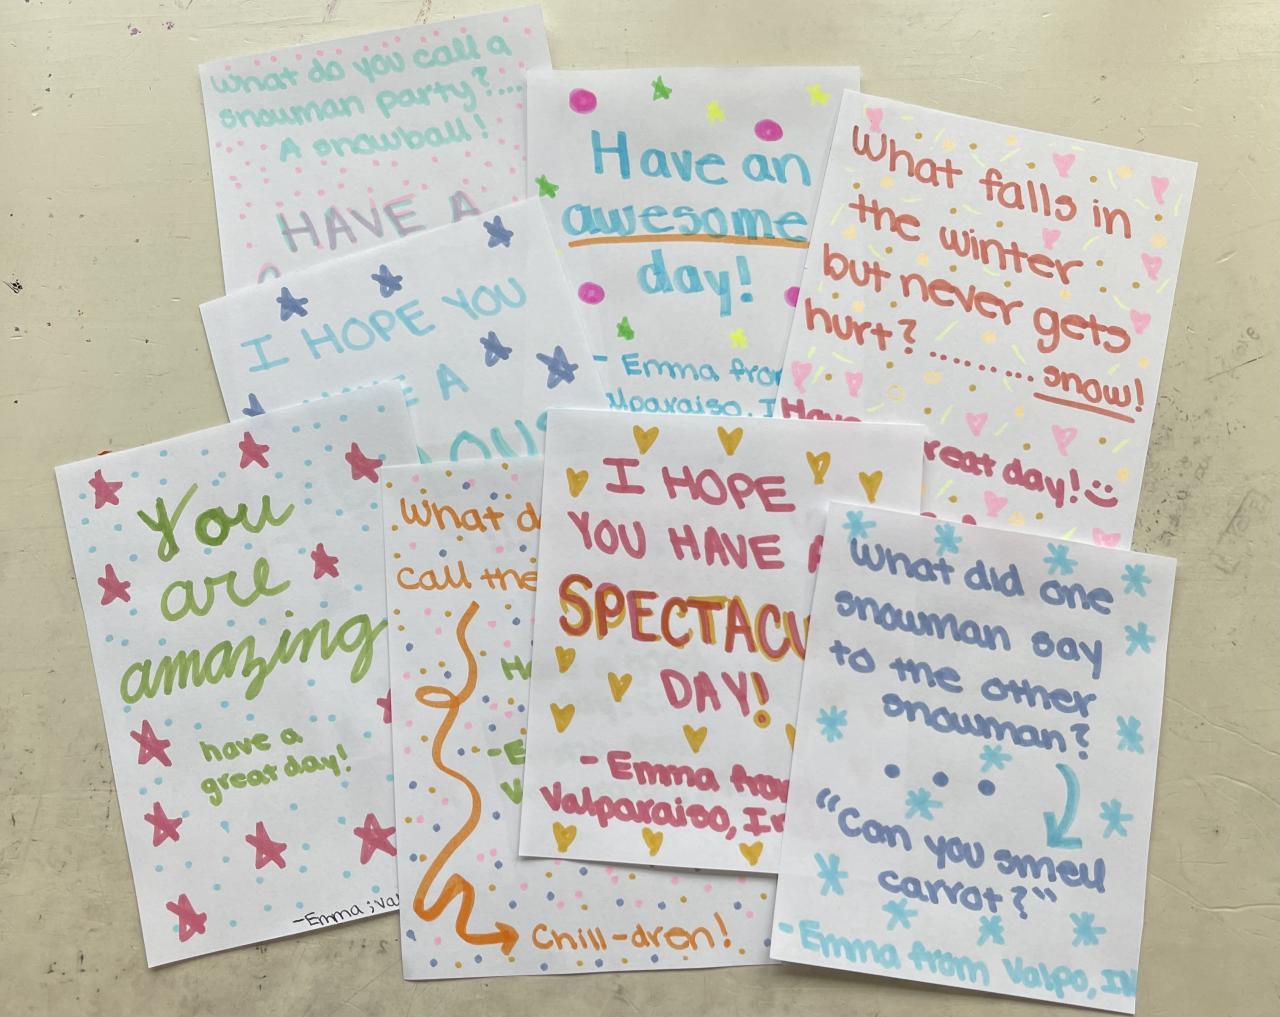 What do you call a
snowman party?...
A snowball!
HAVE A
Have an
awesome
day!
- Emma from
Valparaiso, I
What falls in
the winter
but never gets
hurt? .......... snow!
Have
reat day! :)
I HOPE YOU
A
OUS
You
are
amazing
have a
great day!
-Emma; Val
What d
call the
H
-E
V
Chill-dren!
I HOPE
YOU HAVE A
SPECTACU
DAY!
- Emma from
Valparaiso, In
What did one
snowman say
to the other
snowman?
. . .
"Can you smell
carrot?"
-Emma from Valpo, IN